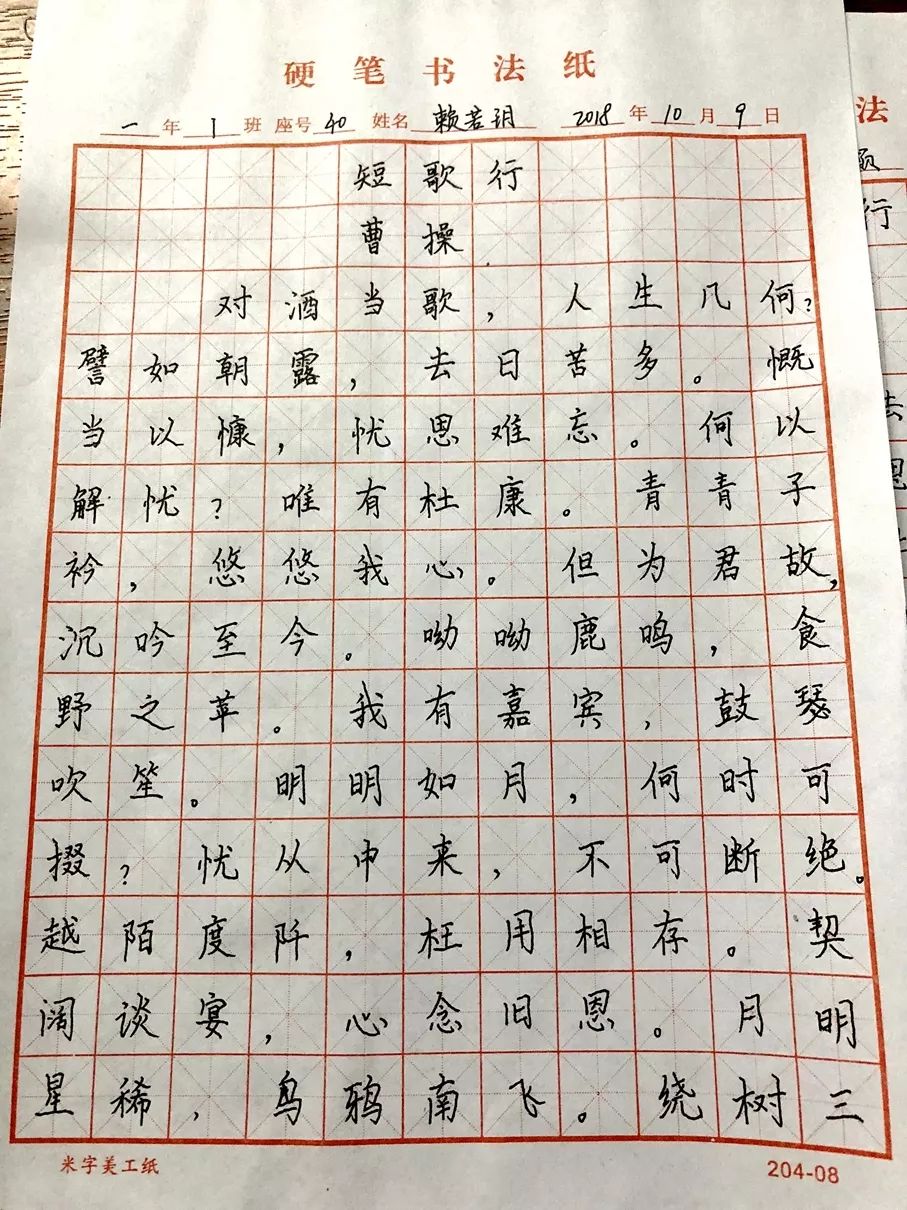 硬笔书法纸
一年1班 座号40 姓名赖若玥 2018年10月9日
短歌行
曹操
对酒当歌，人生几何？
譬如朝露，去日苦多。慨
当以慷，忧思难忘。何以
解忧？唯有杜康。青青子
衿，悠悠我心。但为君故，
沉吟至今。呦呦鹿鸣，食
野之苹。我有嘉宾，鼓瑟
吹笙。明明如月，何时可
掇？忧从中来，不可断绝。
越陌度阡，枉用相存。契
阔谈宴，心念旧恩。月明
星稀，鸟鸦南飞。绕树三
米字美工纸 204-08
法
行